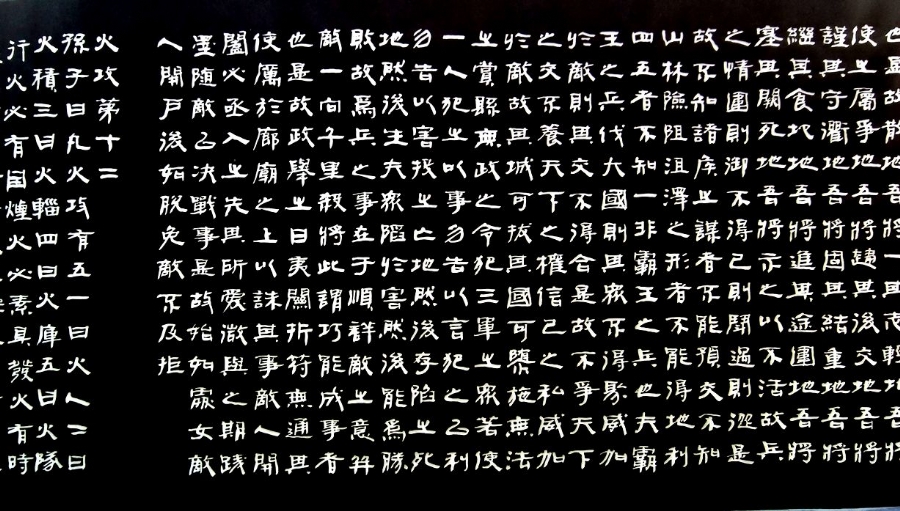 也是故散地吾將一其志輕地吾將
使之屬爭地吾將趨其後交地吾將
謹其守衢地吾將固其結重地吾將
繼其食圮地吾將進其途圍地吾將
塞其闕死地吾將示之以不活故兵
之情圍則御不得已則鬭過則從是
故不知諸侯之謀者不能預交不知
山林險阻沮澤之形者不能得地利
四五者不知一非霸王之兵也夫霸
王之兵伐大國則其眾不得聚威加
於敵則其交不得合是故不爭天下
之交不養天下之權信己之私威加
於敵故其城可拔其國可隳施無法
之賞縣無政之令犯三軍之眾若使
一人犯之以事勿告以言犯之以利
勿告以害投之亡地然後存陷之死
地然後生夫眾陷於害然後能為勝
敗故為兵之事在于順詳敵之意并
敵一向千里殺將此謂巧能成事者
也是故政舉之日夷關折符無通其
使厲於廊廟之上以誅其事敵人開
闔必亟入之先其所愛微與之期踐
墨隨敵以決戰事是故始如處女敵
人開戶後如脫兔敵不及拒
火攻第十二
孫子曰凡火攻有五一曰火人二曰
火積三曰火輜四曰火庫五曰火隊
行火必有因煙火必素具發火有時